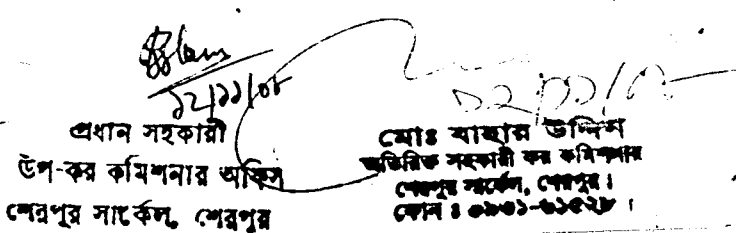 ১২/১১/০৮
প্রধান সহকারী
উপ-কর কমিশনার অফিস
শেরপুর সার্কেল, শেরপুর
১২/১১/০৮
মোঃ বাহার উদ্দিন
অতিরিক্ত সহকারী কর কমিশনার
শেরপুর সার্কেল, শেরপুর।
ফোন ঃ ০৯৩১-৬১৫২৮।